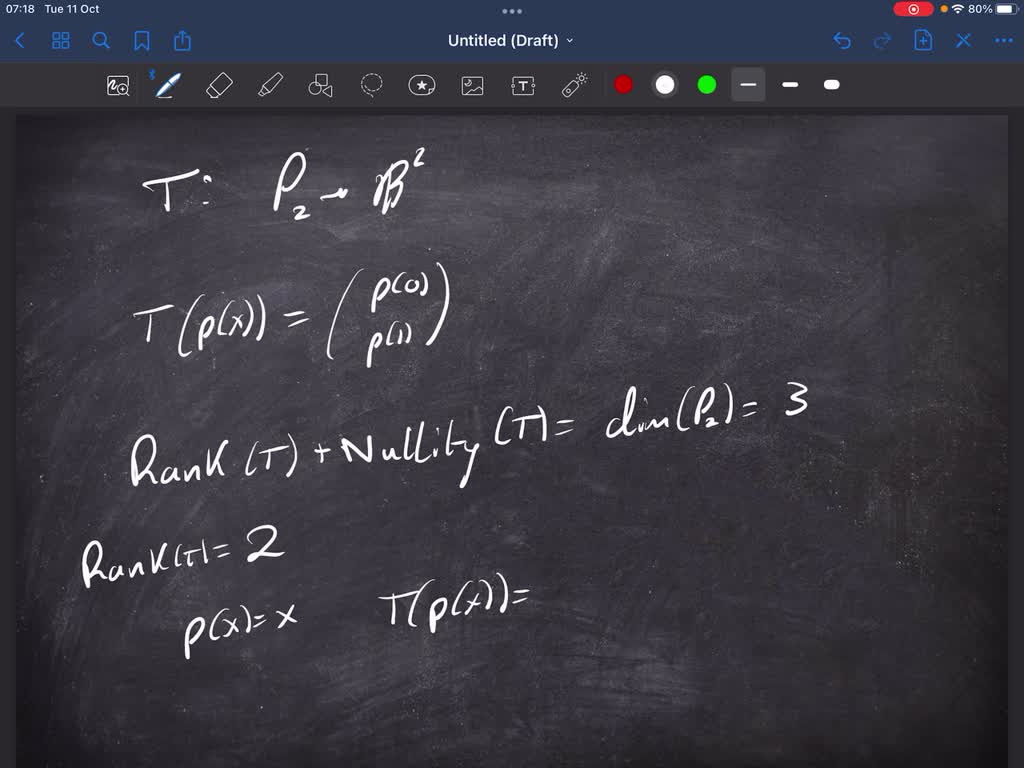 07:18 Tue 11 Oct 80%
Untitled (Draft)
T: P₂ → ℝ²
T(p(x)) = (p(0)
p(1))
Rank (T) + Nullity (T) = dim(P₂) = 3
Rank(T) = 2
p(x) = x T(p(x)) =